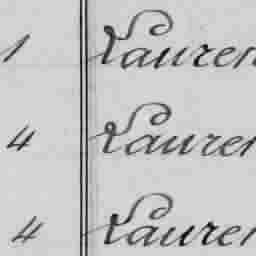 1 Lauren
4 Lauren
4 Lauren